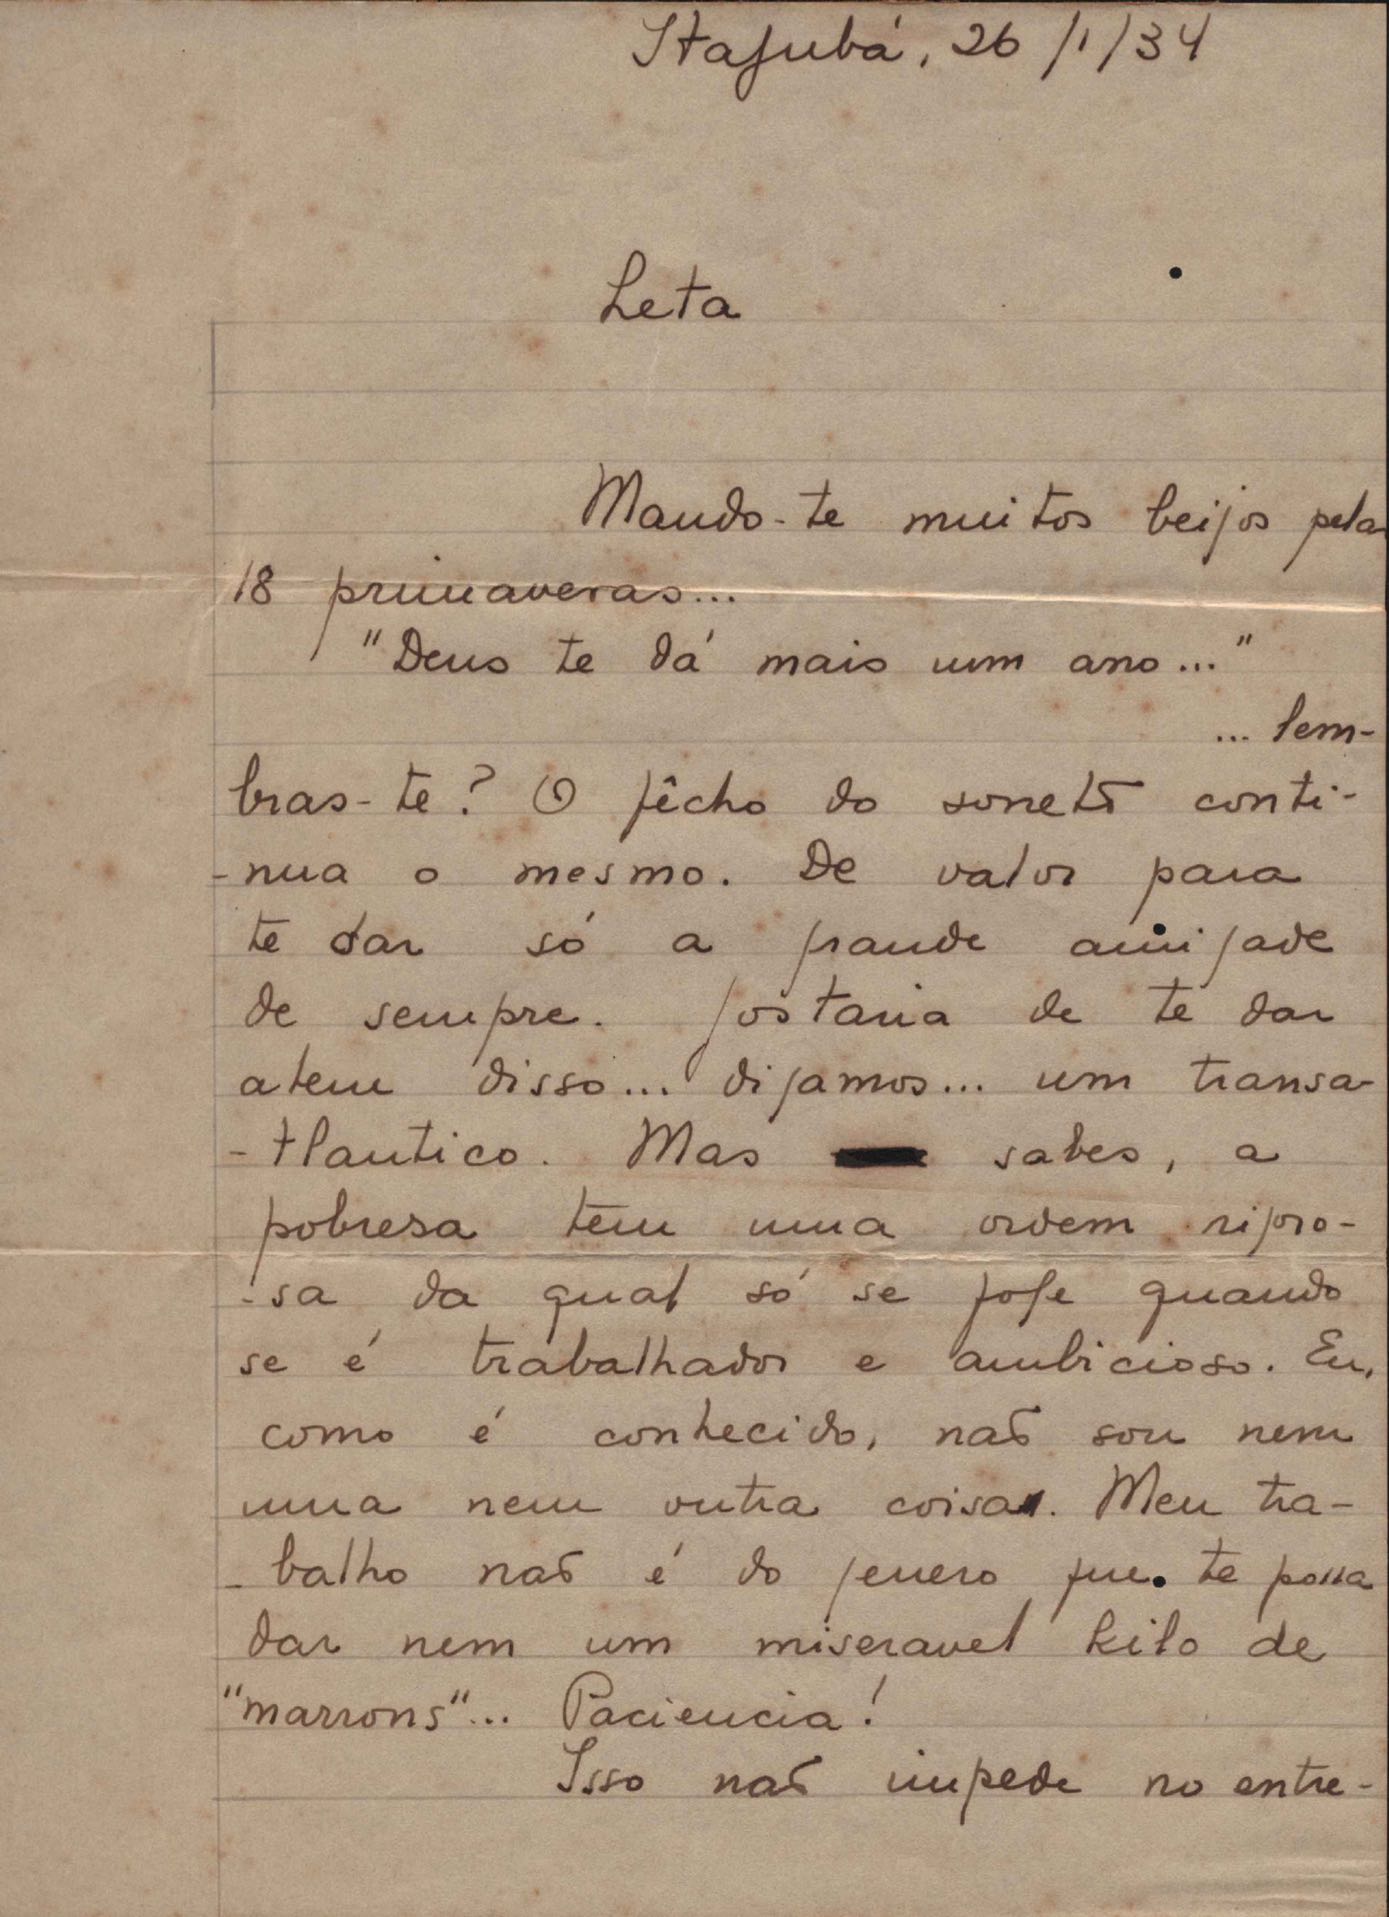 Itajubá, 26/1/34
Leta
Mando-te muitos beijos pela
18 primaveras...
"Deus te dá mais um ano..."
... lem-
bras-te? O fêcho do soneto conti-
-nua o mesmo. De valor para
te dar só a grande amigade
de sempre. gostaria de te dar
alem disso... digamos... um transa-
-tlantico. Mas sabes, a
pobresa tem uma ordem rigoro-
-sa da qual só se foge quando
se é trabalhador e ambicioso. Eu,
como é conhecido, não sou nem
uma nem outra coisa. Meu tra-
-balho não é do genero que te possa
dar nem um miseravel kilo de
"marrons"... Paciencia!
Isso não impede no entre-